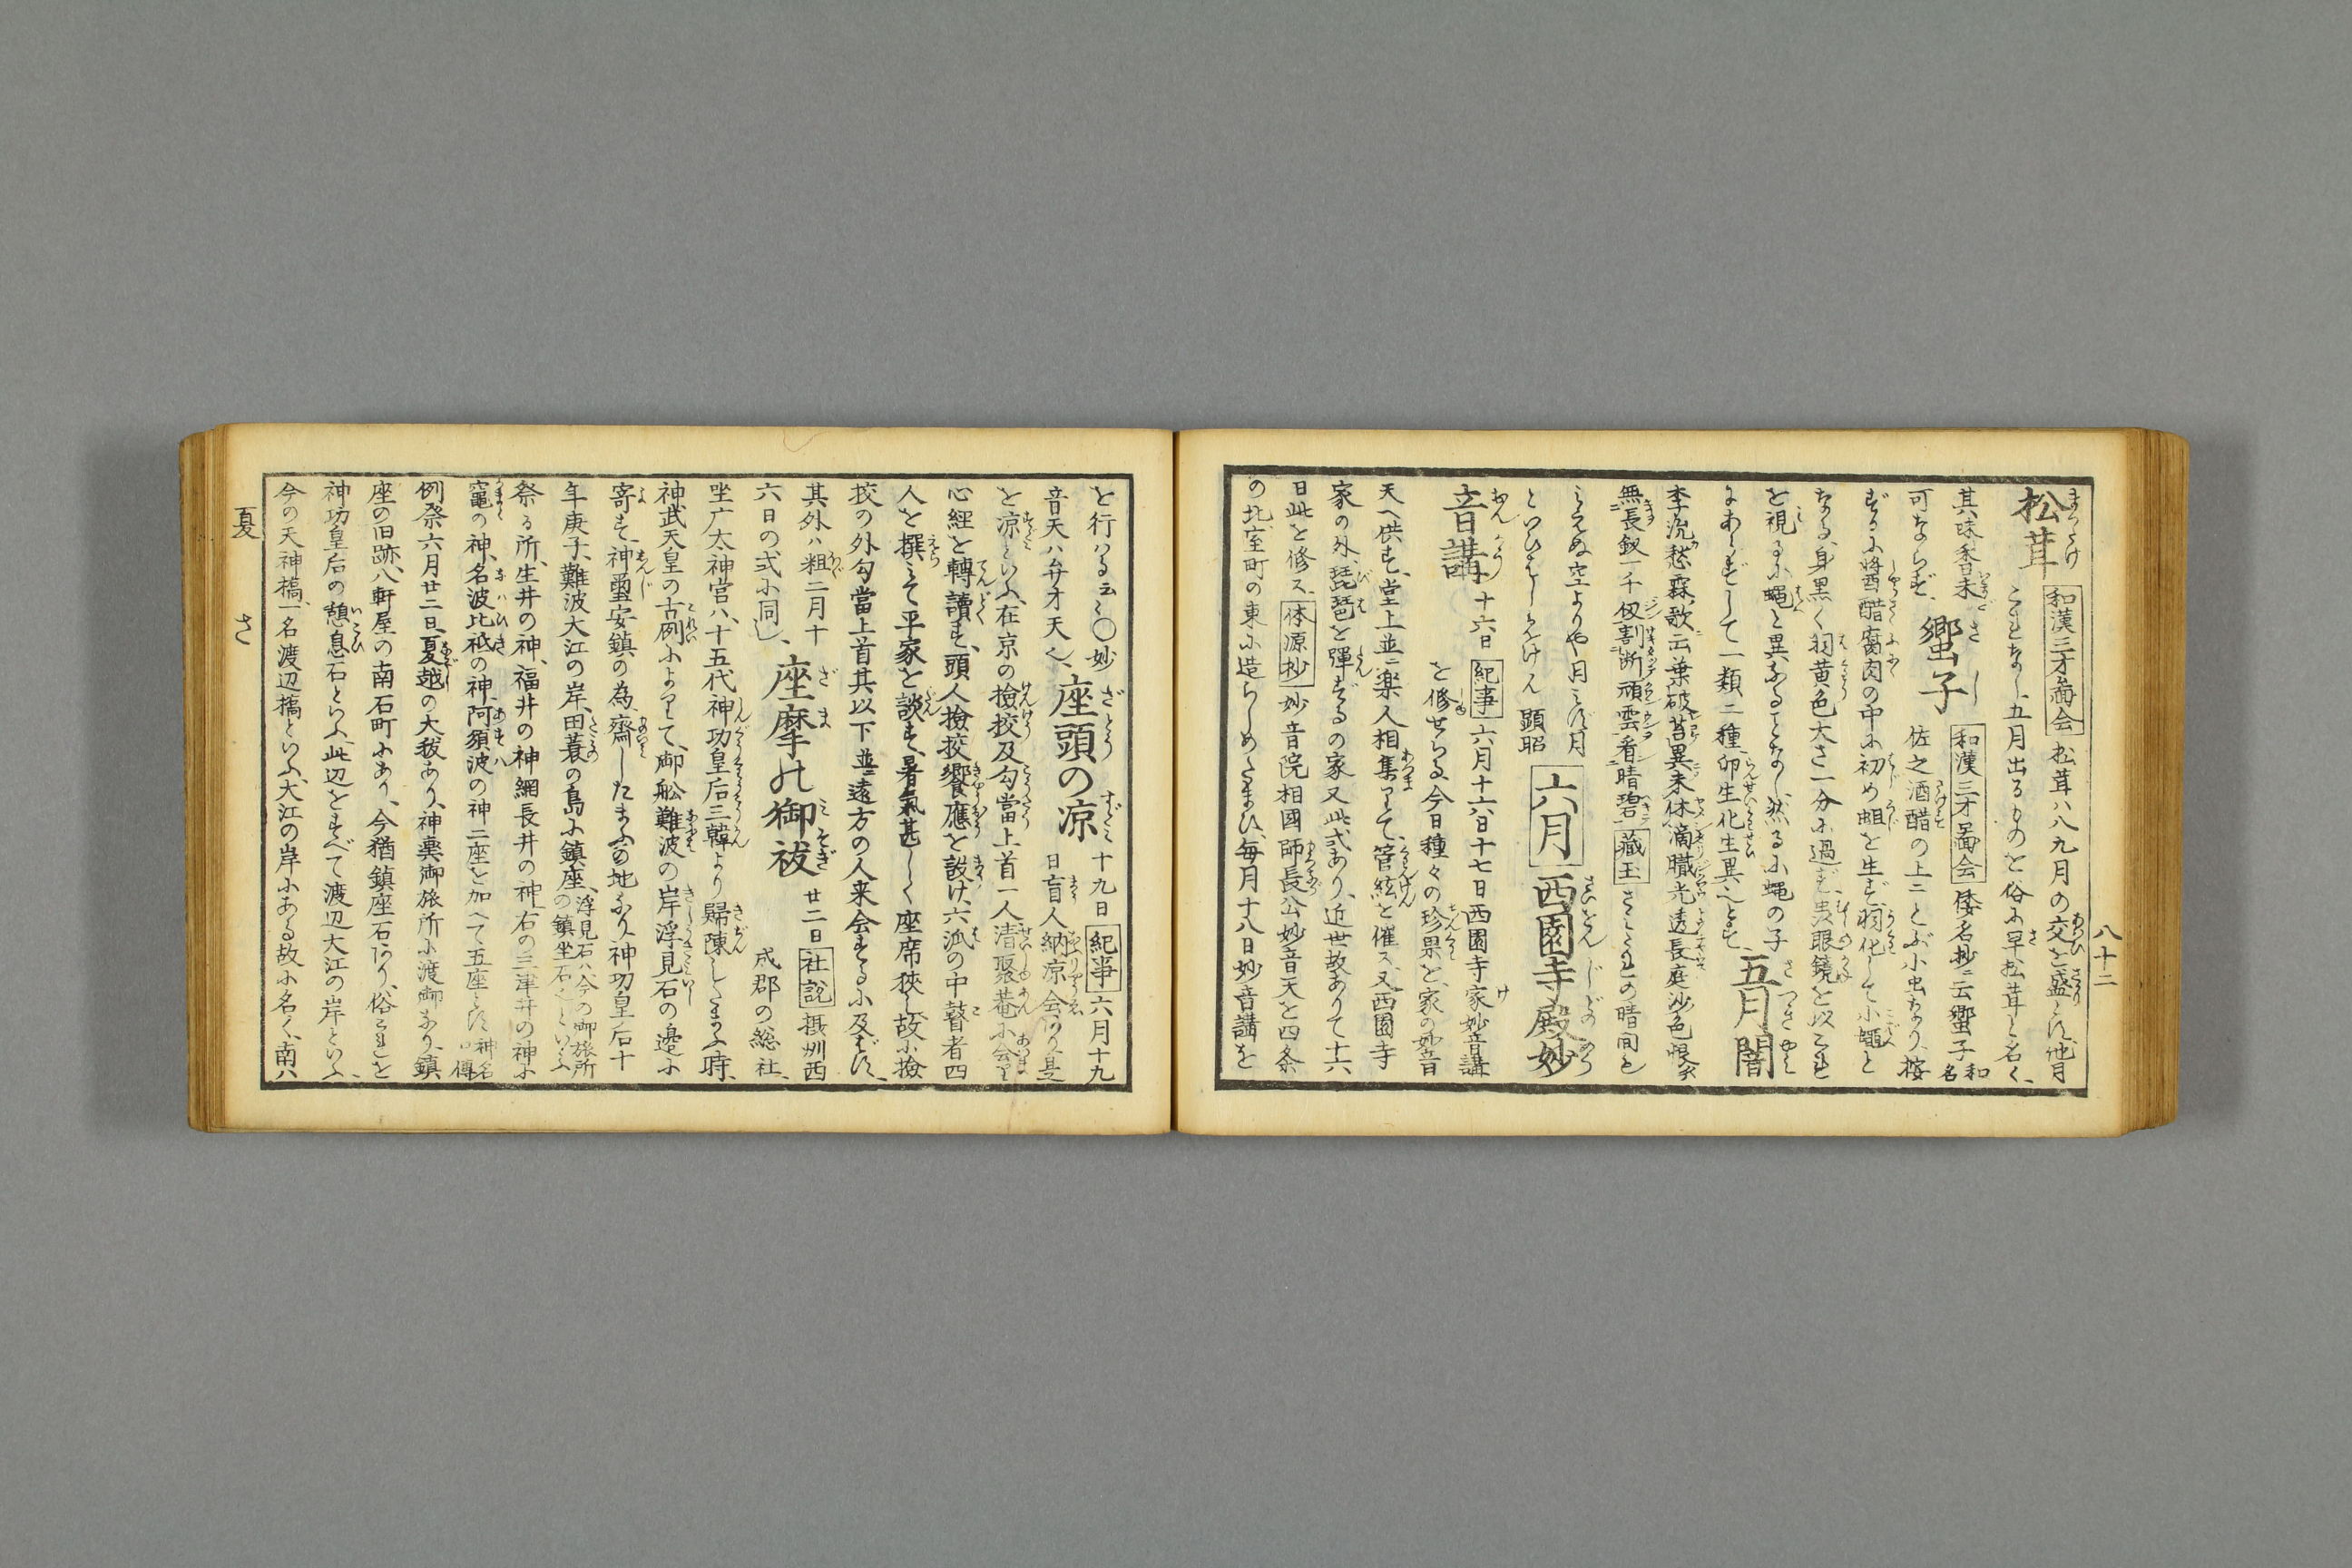 八十二
松茸 和漢三才圖会 松茸ハ八九月の交を盛とす、他月
これなし、五月出るものを俗に早松茸と名く、
其味香美
可ならず、 蠁子 和漢三才圖会 倭名抄ニ云蠁子和名
佐之酒醋の上ニとぶ小虫なり、按
ずるに醬醋腐肉の中に初め蛆を生ず、羽化して小蠅と
なる、身黒く羽黄色大さ一分に過ず、眼鏡を以これ
を視るに蠅と異なることなし、然るに蠅の子
にあらずして一類二種、卵生化生異也とす、 五月闇
李洸愁霖歌云葉破苔異未休滴朧光透長庭沙色
無長釼一千仭割断頑雲看晴碧 蔵玉 さみだれの晴間も
みえぬ空よりや月みず月
といひはじめけん 顕昭 六月 西園寺殿妙
音講 十六日 紀事 六月十六日十七日西園寺家妙音講
を修せらる、今日種々の珍果を、家の妙音
天へ供す、堂上並ニ楽人相集りて、管絃を催ス、又西園寺
家の外、琵琶を弾ずるの家又此式あり、近世故ありて十六
日此を修ス、 体源抄 妙音院相國師長公妙音天を四条
の北、室町の東に造らしめたまひ、毎月十八日妙音講を
を行はる云々〇妙
音天ハ弁才天也、 座頭の涼 十九日 紀事 六月十九
日盲人納涼会あり是
を涼といふ、在京の撿挍及勾當上首一人清聚菴に会し
心經を轉讀す、頭人撿挍饗應を設け、六派の中瞽者四
人を撰みて平家を談ず、暑氣甚しく座席狭し故に撿
挍の外勾當上首其以下並ニ遠方の人来会するに及ばず、
其外ハ粗二月十
六日の式に同じ、 座摩の御祓 廿二日 社説 摂州西
成郡の総社、
坐广太神宮ハ、十五代神功皇后三韓より歸陳したまふ時、
神武天皇の古例によりて、御舩難波の岸浮見石の邉に
寄す、神璽安鎮の為、齋したまふの地なり神功皇后十
年庚子、難波大江の岸、田蓑の島に鎮座、浮見石ハ今の御旅所の鎮坐石也といふ
祭る所、生井の神、福井の神、綱長井の神、右の三津井の神に
竈の神、名波比祗の神、阿須波の神二座を加へて五座とす、神名口傳
例祭六月廿二日、夏越の大祓あり、神輿御旅所に渡御あり、鎮
座の旧跡、八軒屋の南石町にあり、今猶鎮座石あり、俗これを
神功皇后の憩息石といふ、此辺をすべて渡辺大江の岸といふ、
今の天神橋、一名渡辺橋といふ、大江の岸にある故に名く、南ハ
夏 さ